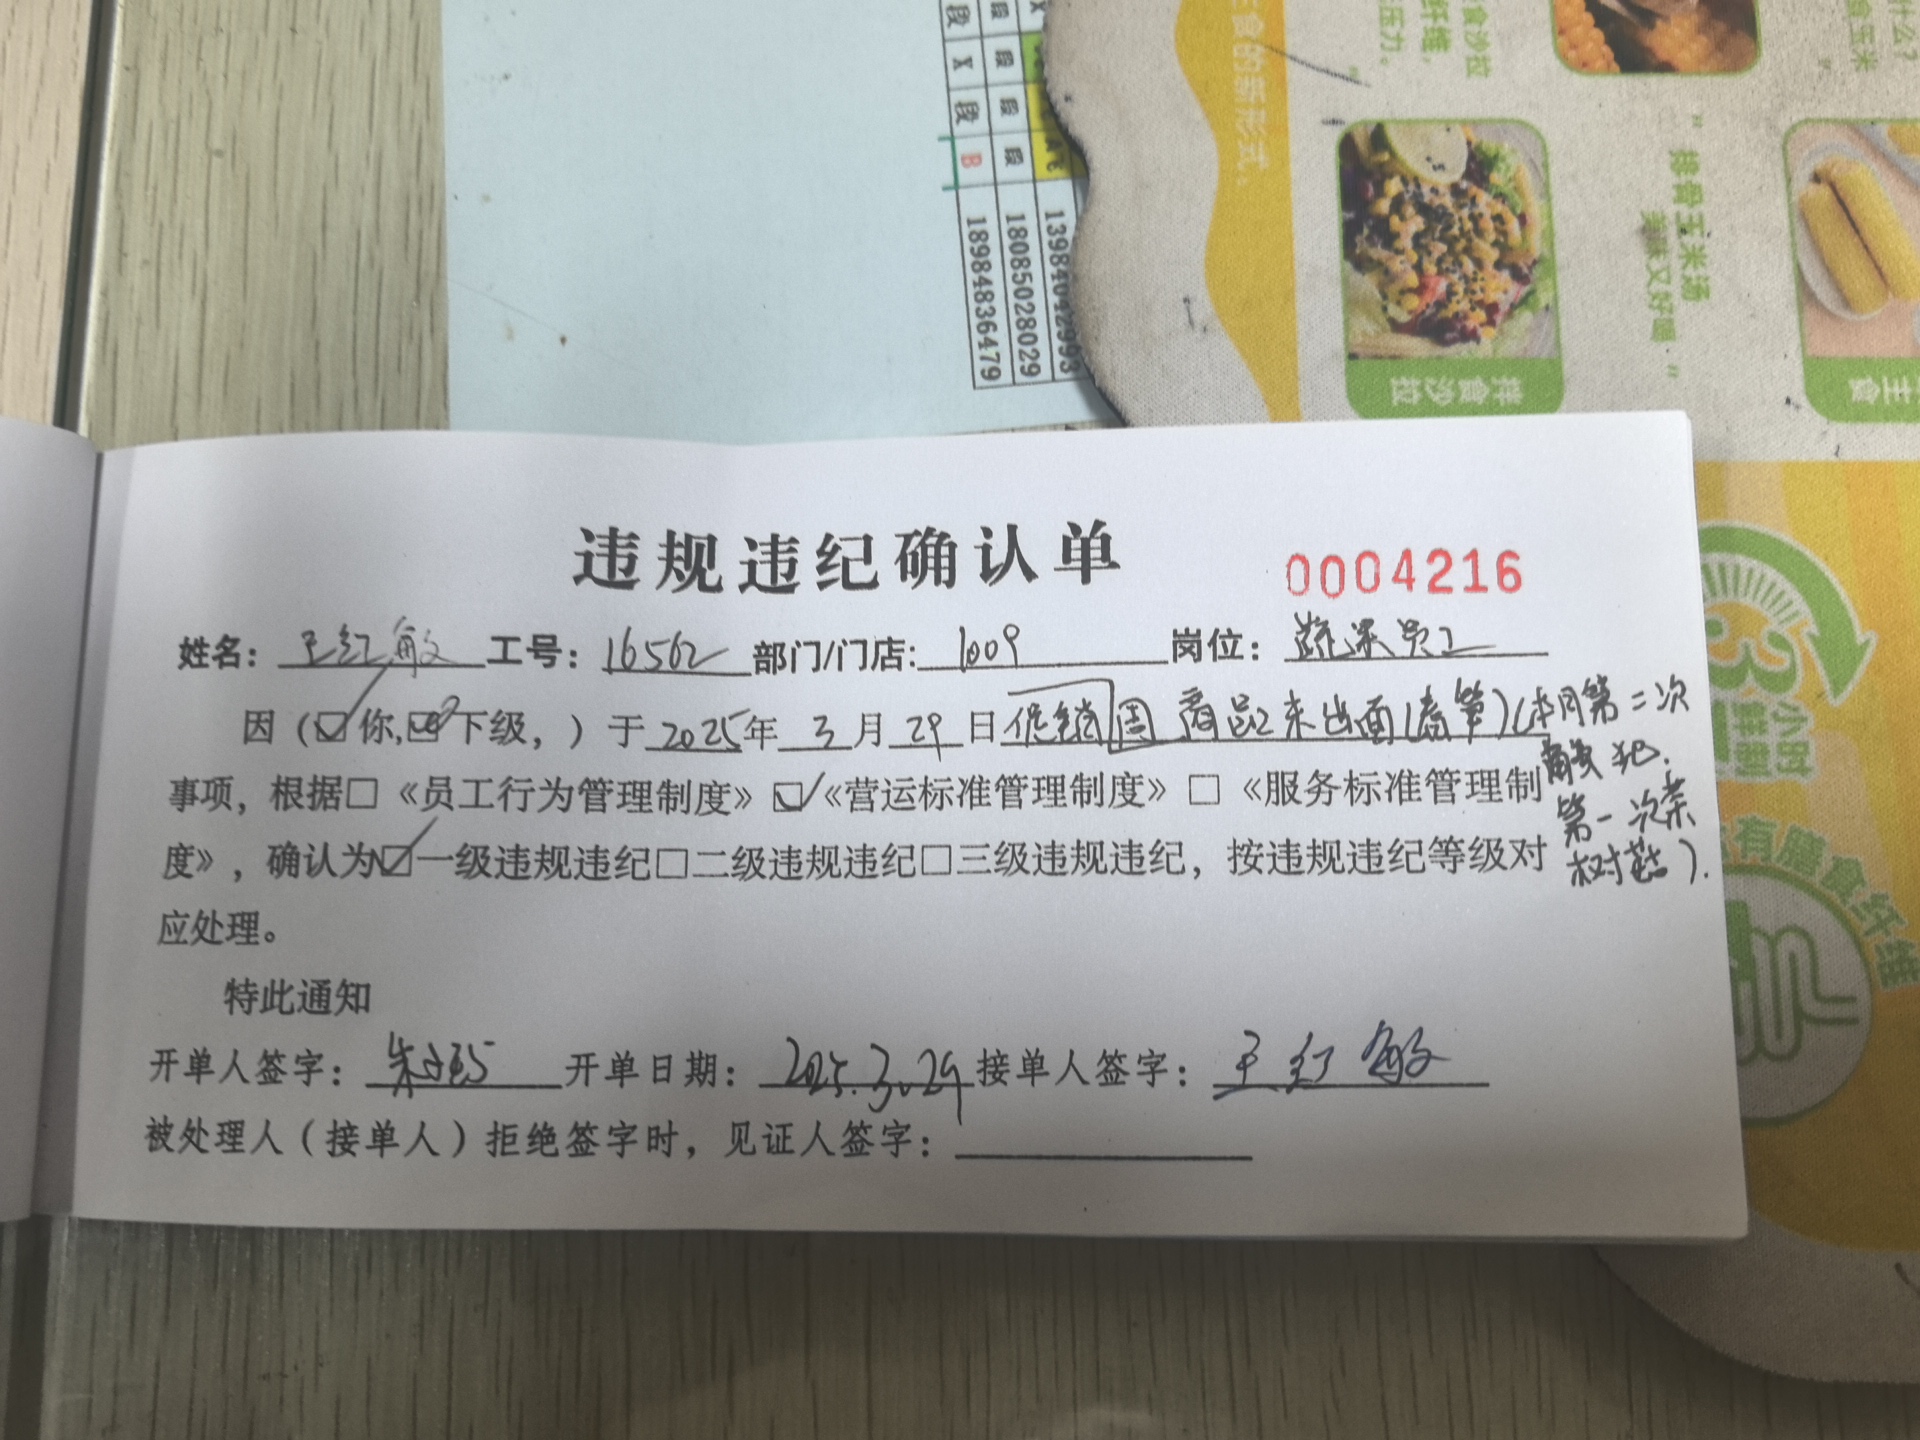 段
段
X
段
X
段
段
段
B
段
13984042993
18085028029
18984836479
主食的新形式。
食沙拉
纤维，
压力。”
什么？
金玉米
”
“排骨玉米汤
美味又好喝。”
拌食沙拉
主食
违规违纪确认单
0004216
姓名：王红敏 工号：16562 部门/门店：1009 岗位：蔬果员工
因（☑你，下级，）于2025年3月29日促销周商品未出面（春笋）（本月第二次
事项，根据□《员工行为管理制度》☑《营运标准管理制度》□《服务标准管理制
触犯.
第一次茶
树菇）.
度》，确认为☑一级违规违纪□二级违规违纪□三级违规违纪，按违规违纪等级对
应处理。
特此通知
开单人签字： 开单日期：2025.3.29 接单人签字：王红敏
被处理人（接单人）拒绝签字时，见证人签字：
3小时
鲜制
有膳食纤维